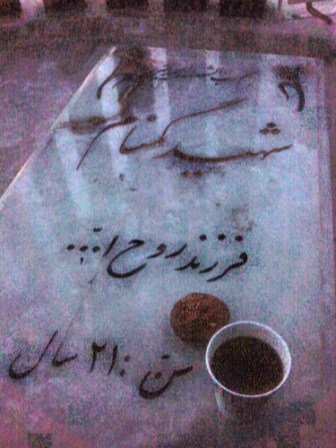 شهید گمنام
فرزند روح ا...
سن : ۲۱ سال